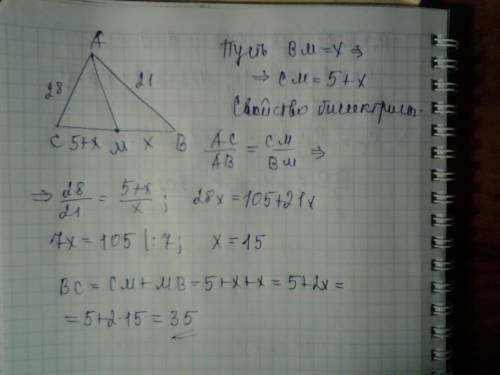 A
28
21
C 5+x M x B
Пусть BM = x ⇒
⇒ CM = 5+x
Свойство биссектрисы.
AC/AB = CM/BM ⇒
⇒ 28/21 = 5+x/x ; 28x = 105+21x
7x = 105 |:7; x = 15
BC = CM + MB = 5+x+x = 5+2x =
= 5+2·15 = 35